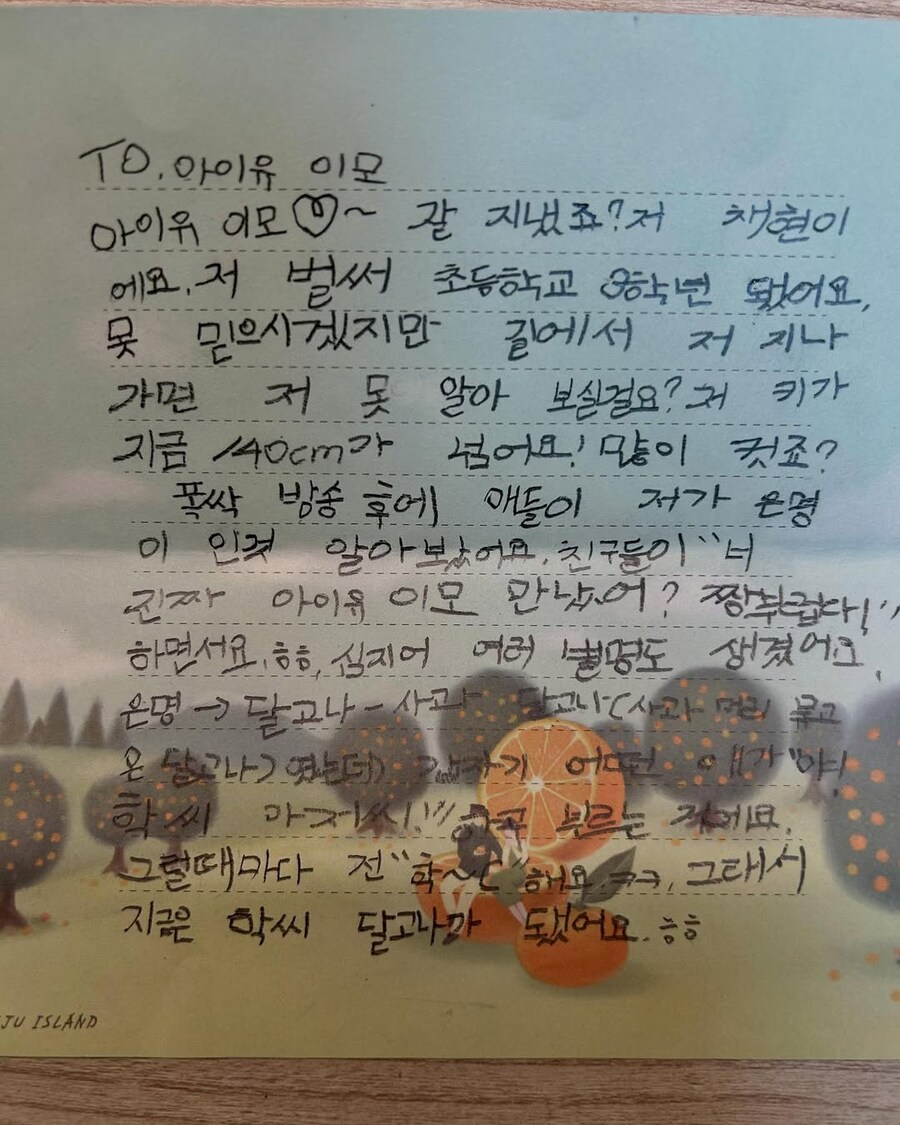 TO. 아이유 이모
아이유 이모♡~ 잘 지냈죠? 저 채현이
에요. 저 벌써 초등학교 3학년 됐어요,
못 믿으시겠지만 길에서 저 지나
가면 저 못 알아 보실걸요? 저 키가
지금 140cm가 넘어요! 많이 컷죠?
폭싹 방송 후에 애들이 저가 은명
이 인것 알아보았어요. 친구들이 "너
진짜 아이유 이모 만났어? 짱 부럽다!"
하면서요. ㅎㅎ, 심지어 여러 별명도 생겼어요.
은명 → 달고나 - 사과 달고나(사과 머리 묶고
온 달고나)였는데 갑자기 어떤 애가 "야!
학 씨 아저씨!" 하고 부르는 거에요.
그럴때마다 전 "학~씨" 해요. ㅋㅋ, 그래서
지금은 학씨 달고나가 됐어요. ㅎㅎ
JU ISLAND